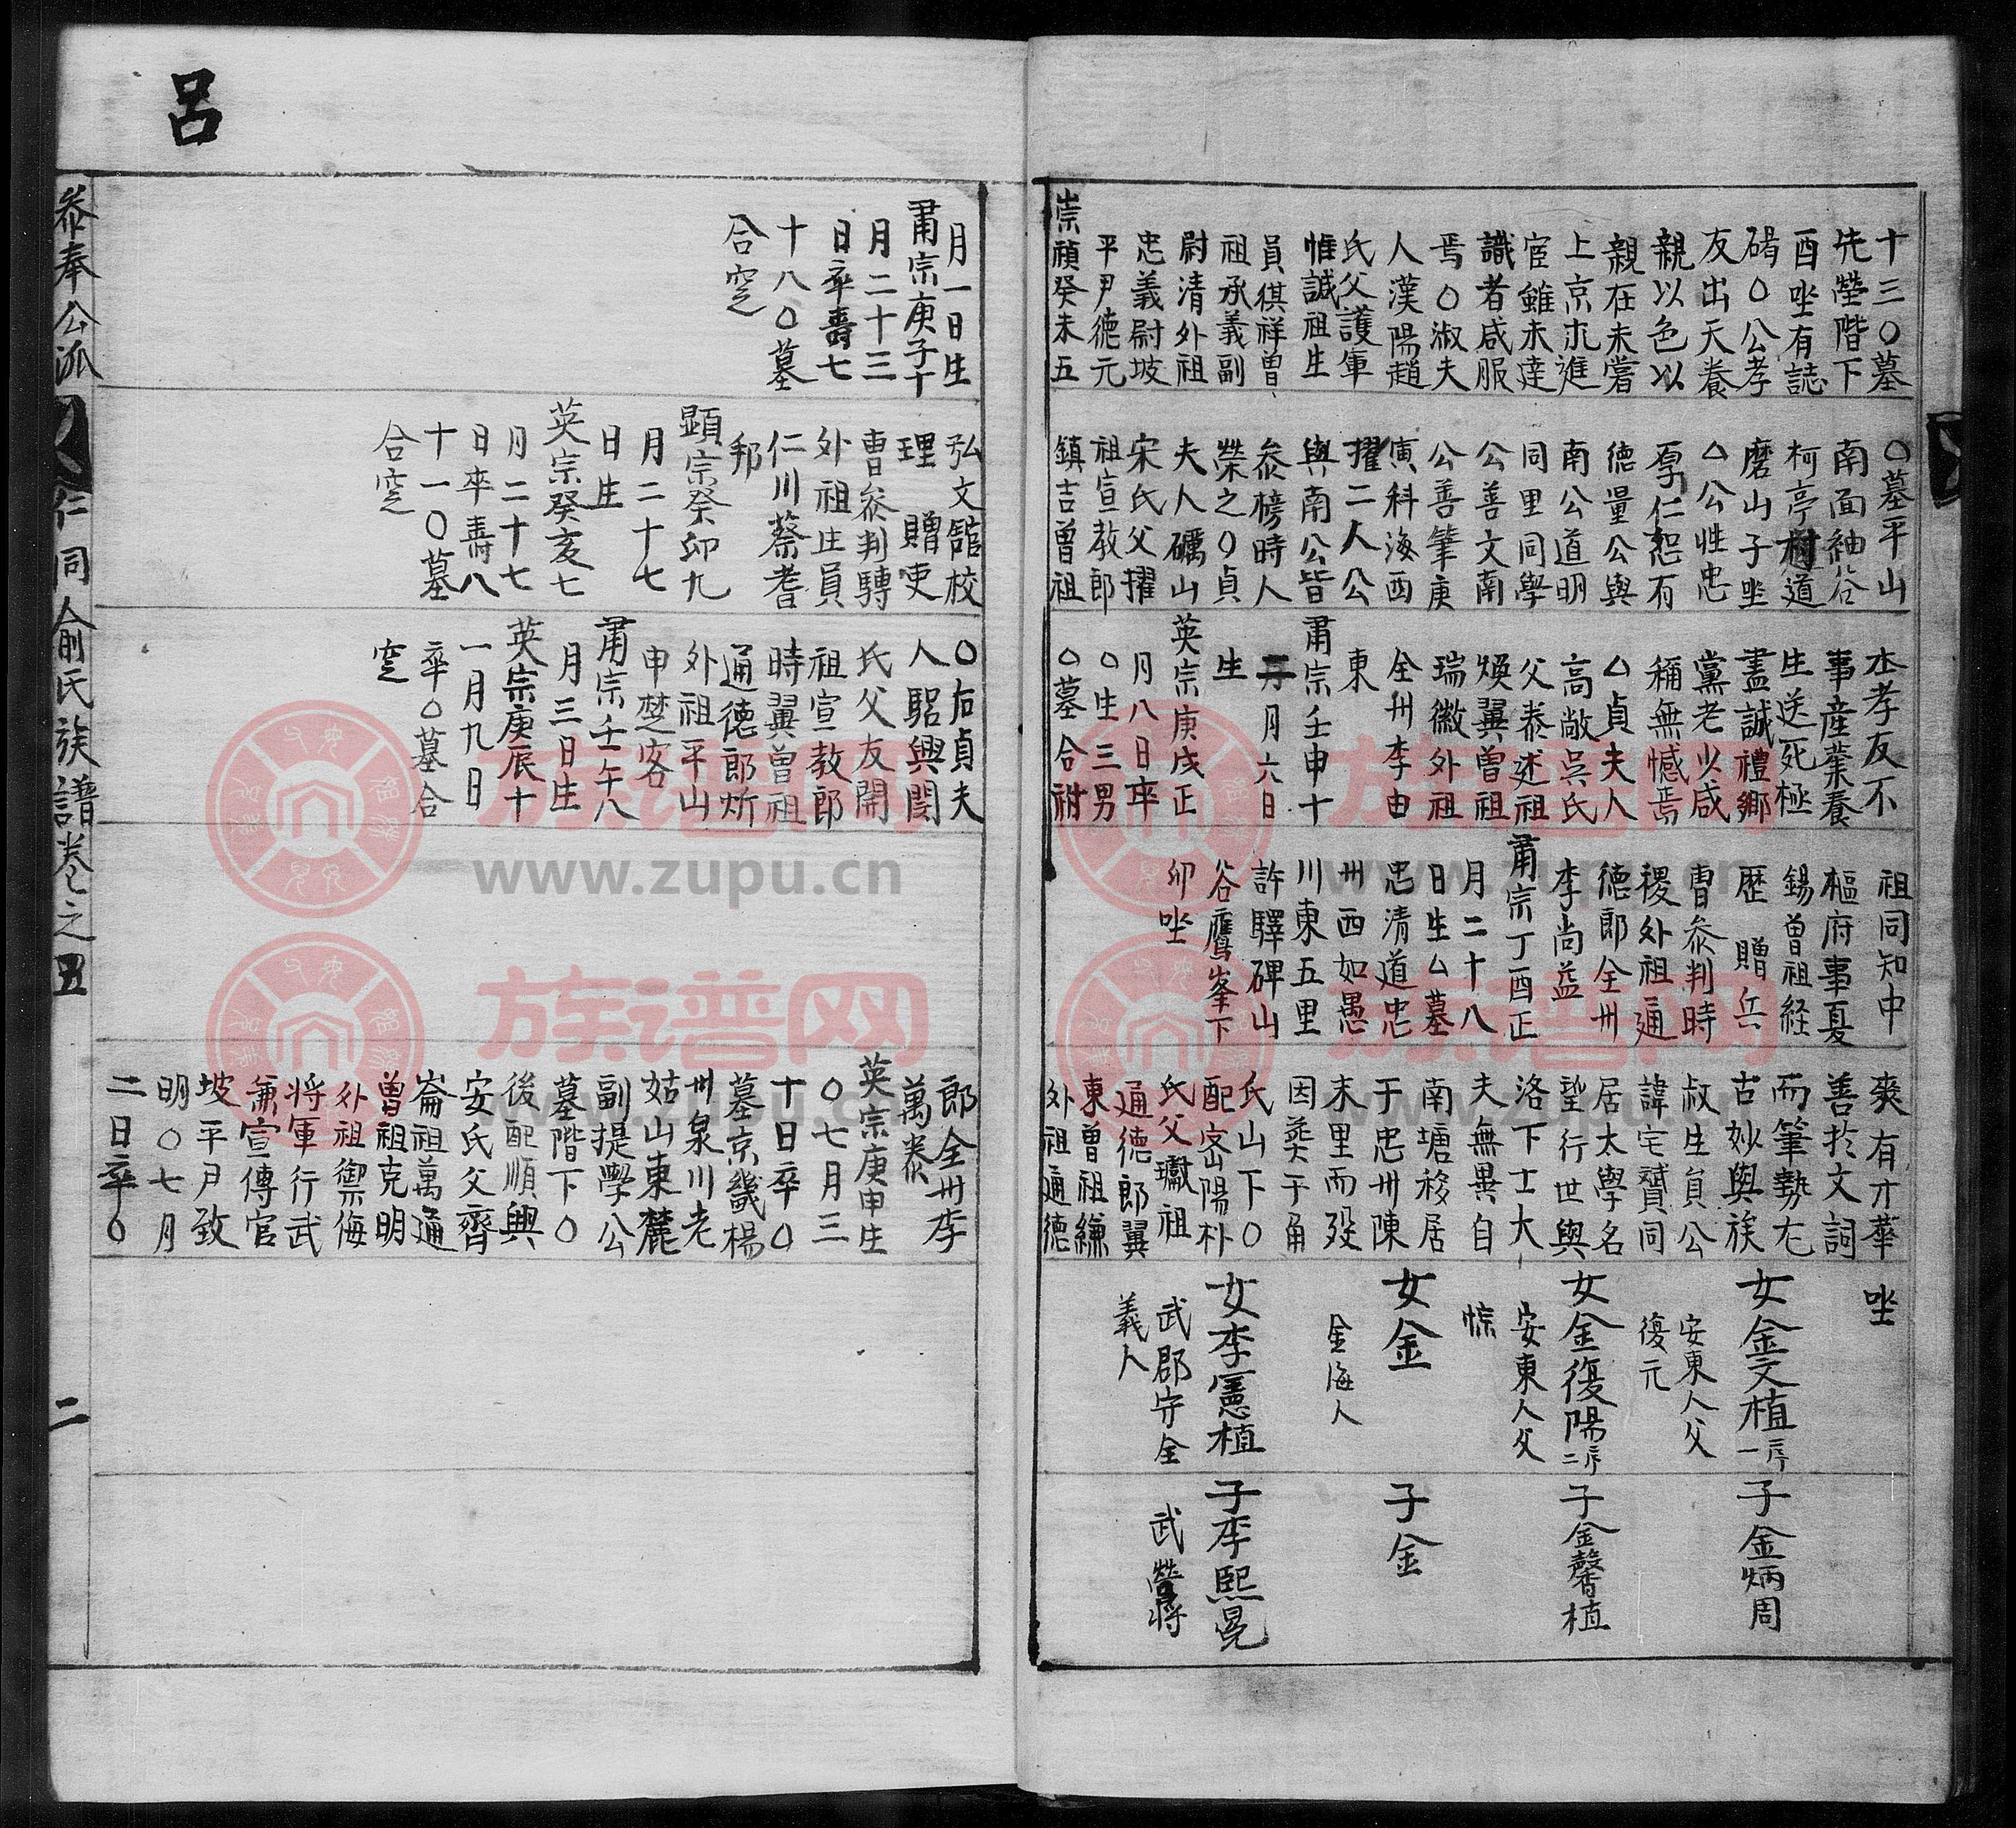 十三○墓
先塋階下
酉坐有誌
碣○公孝
友出天養
親以色以
親在未嘗
上京求進
宦雖未達
識者咸服
焉○淑夫
人漢陽趙
氏父護軍
惟誠祖生
員禥祥曽
祖承義副
尉清外祖
忠義尉坡
平尹德元
崇禎癸未五
○墓平山
南面袖谷
柯亭村道
磨山子坐
△公性忠
厚仁恕有
德量公與
南公道明
同里同學
公善文南
公善筆庚
寅科海西
擢二人公
與南公皆
叅榜時人
榮之○貞
夫人礪山
宋氏父擢
祖宣教郎
鎮吉曽祖
本孝友不
事産業養
生送死極
盡誠禮鄉
黨老少咸
稱無憾焉
△貞夫人
高敞吳氏
父泰述祖
煥翼曽祖
瑞徽外祖
全州李由
東
肅宗壬申十
二月六日
生
英宗庚戌正
月八日卒
○生三男
○墓合祔
祖同知中
樞府事夏
錫曽祖経
歴 贈兵
曺叅判時
稷外祖通
德郎全州
李尚益
肅宗丁酉正
月二十八
日生△墓
忠清道忠
州西如愚
川東五里
許驛碑山
谷鷹峯下
卯坐
爽有才華
善於文詞
而筆勢尤
古妙與族
叔生員公
諱宅贇同
居太學名
望行世與
洛下士大
夫無異自
南塘移居
于忠州陳
末里而殁
因葬于角
氏山下○
配密陽朴
氏父瓛祖
通德郎翼
東曽祖縑
外祖通德
坐
女金文植一序
安東人父
復元
女金復陽二序
安東人父
悰
女金
金海人
女李憲植
武郡守全
義人
子金炳周
子金馨植
子金
子李熙晃
武營將
月一日生
肅宗庚子十
月二十三
日卒壽七
十八○墓
合窆
弘文館校
理 贈吏
曺叅判騿
外祖生員
仁川蔡耆
邦
顕宗癸卯九
月二十七
日生
英宗癸亥七
月二十七
日卒壽八
十一○墓
合窆
○右貞夫
人驪興閔
氏父友開
祖宣教郎
時翼曽祖
通德郎炘
外祖平山
申楚客
肅宗壬午八
月三日生
英宗庚辰十
一月九日
卒○墓合
窆
郎全州李
萬泰
英宗庚申生
○七月三
十日卒△
墓京畿楊
州泉川老
姑山東麓
副提學公
墓階下○
後配順興
安氏父齊
崙祖萬通
曽祖克明
外祖禦侮
将軍行武
兼宣傳官
坡平尹致
明○七月
二日卒○
呂
叅奉公派 仁同俞氏族譜卷之五 二
族谱网
www.zupu.cn
族谱网
www.zupu.cn
族谱网
www.zupu.cn
族谱网
www.zupu.cn